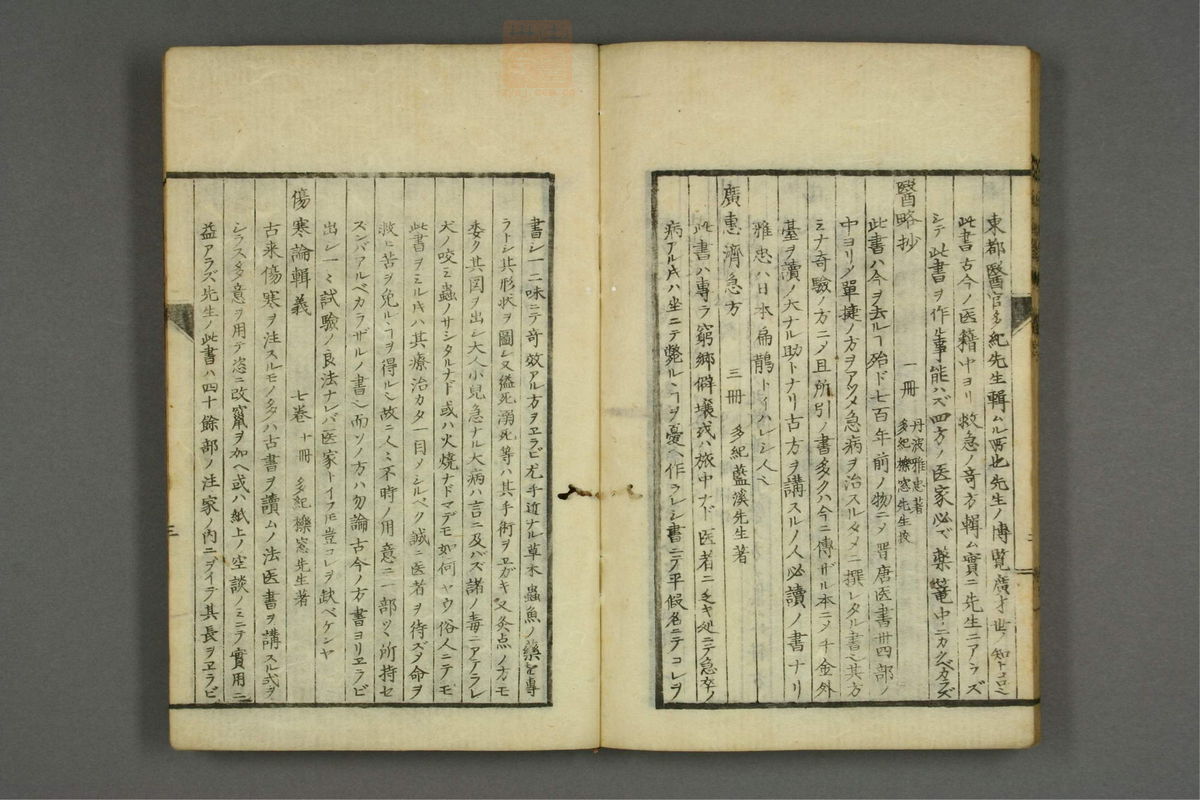 東都醫官多紀先生輯ムル所也先生ノ博覧廣才世ノ知トコロニ〆
此書古今ノ医籍中ヨリ救急ノ奇方輯ム實ニ先生ニアラズ
シテ此書ヲ作ル事能ハズ四方ノ医家必ズ藥篭中ニカクベカラズ
醫略抄 一冊 丹波雅忠著 多紀櫟窓先生挍
此書ハ今ヲ去ルヿ殆ド七百年前ノ物ニ〆晋唐医書卅四部ノ
中ヨリ〆單捷ノ方ヲアツメ急病ヲ治スルタメニ撰レタル書也其方
ミナ奇驗ノ方ニ〆且所引ノ書多クハ今ニ傳ザル本ニ〆千金外
臺ヲ讀ノ大ナル助トナリ古方ヲ講スルノ人必讀ノ書ナリ
雅忠ハ日本扁鵲トイハレシ人也
廣惠濟急方 三冊 多紀藍溪先生著
此書ハ專ラ窮郷僻壤或ハ旅中ナド医者ニ乏キ処ニテ急卒ノ
病アル片ハ坐ニテ斃ルヽヿヲ憂ヘ作ラレシ書ニテ平假名ニテコレヲ
書シ一二味ニテ奇效アル方ヲヱラビ尤手近ナル草木蟲魚ノ藥を專
ラトシ其形状ヲ圖シ又縊死溺死等ハ其手術ヲヱガキ又灸点ノ方モ
委ク其図ヲ出シ大人小兒急ナル大病ハ言ニ及バズ諸ノ毒ニアテラレ
犬ノ咬ミ蟲ノサシタルナド或ハ火焼ナドマデモ如何ヤウ俗人ニテモ
此書ヲミル片ハ其療治カタ一目〆シルベク誠ニ医者ヲ待ズ〆命ヲ
救ヒ苦ヲ免ルヽヿヲ得ル也故ニ人々不時ノ用意ニ一部ツヽ所持セ
ズンバアルベカラザルノ書也而ソノ方ハ勿論古今ノ方書ヨリヱラビ
出シ一々試驗ノ良法ナレバ医家トイフ𪜈豈コレヲ缺ベケンヤ
傷寒論輯義 七巻 十冊 多紀櫟窓先生著
古来傷寒ヲ注スルモノ多クハ古書ヲ讀ムノ法医書ヲ講スル式ヲ
シラズ多意ヲ用テ恣ニ改竄ヲ加ヘ或ハ紙上ノ空談ノミニテ實用ニ
益アラズ先生ノ此書ハ四十餘部ノ注家ノ内ニヲイテ其長ヲヱラビ
三